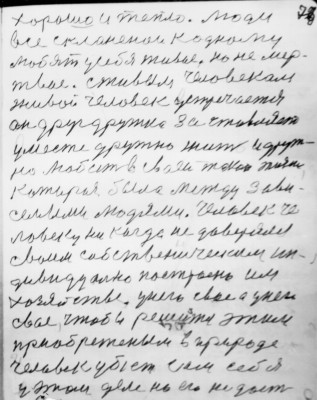 хорошо и тепло. Люди
все склонены к одному
любят у себя живое, но не мер-
твое. с живым человекам
живой человек устречается
он друг дружка заставляет
уместе дружно жить и друж-
но любить в своей такой
которая была между зави-
селыми людями. Человек че
ловеку никогда не доверялся
своим собственическим ин-
дивидуално построеным
хозяйстве, у него свае а у него
свае, чтобы решить этим
приобретеным в природе
человек убист сам себя
у этом деле но его не доста